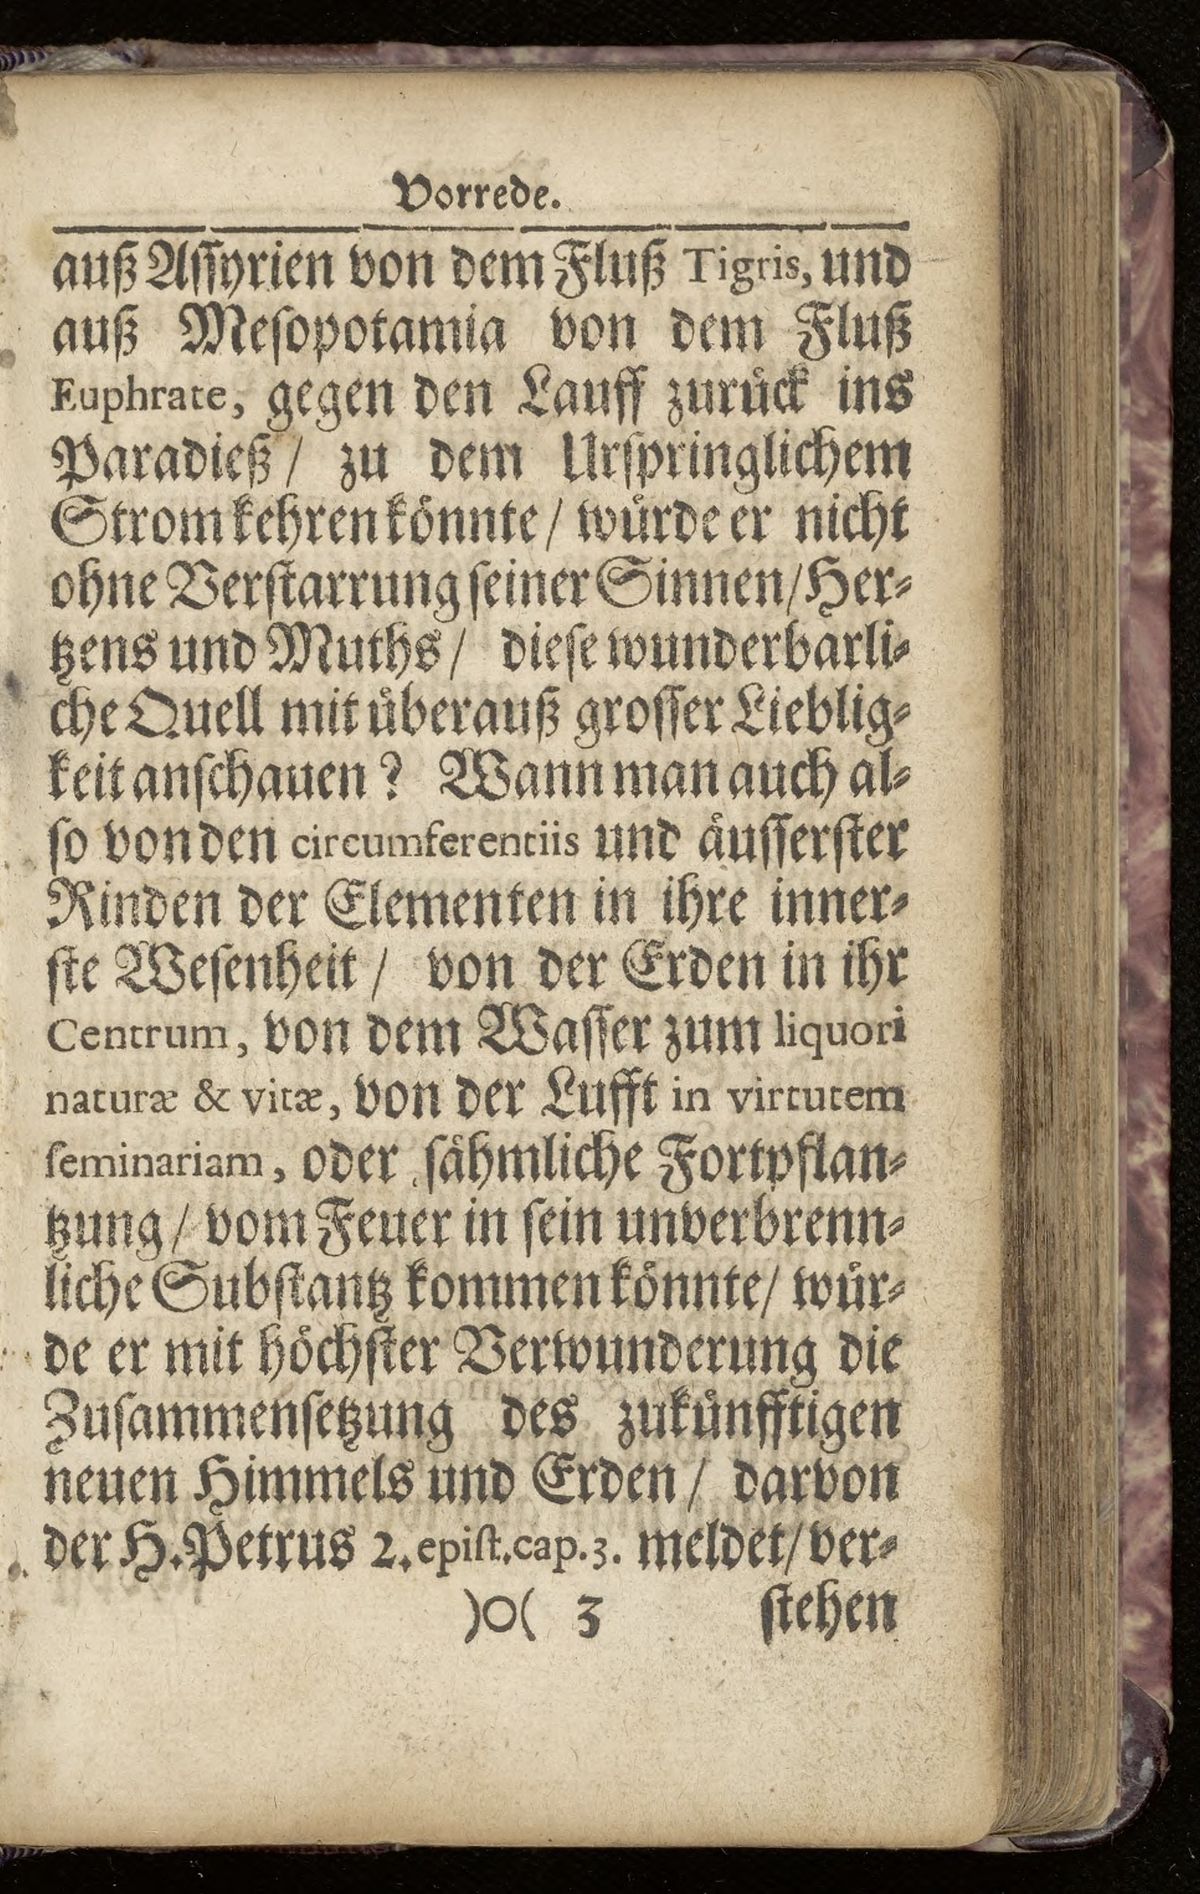 Vorrede.
auß Aſſyrien von dem Fluß Tigris, und
auß Meſopotamia von dem Fluß
Euphrate, gegen den Lauff zuruͤck ins
Paradieß / zu dem Urſpringlichem
Strom kehren koͤnnte / wuͤrde er nicht
ohne Verſtarrung ſeiner Sinnen / Her⸗
tzens und Muths / dieſe wunderbarli⸗
che Quell mit uͤberauß groſſer Lieblig⸗
keit anſchauen? Wann man auch al⸗
ſo von den circumferentiis und aͤuſſerſter
Rinden der Elementen in ihre inner⸗
ſte Weſenheit / von der Erden in ihr
Centrum, von dem Waſſer zum liquori
naturæ & vitæ, von der Lufft in virtutem
ſeminariam, oder ſaͤhmliche Fortpflan⸗
tzung / vom Feuer in ſein unverbrenn⸗
liche Subſtantz kommen koͤnnte / wuͤr⸗
de er mit hoͤchſter Verwunderung die
Zuſammenſetzung des zukuͤnfftigen
neuen Himmels und Erden / darvon
der H. Petrus 2. epiſt. cap. 3. meldet / ver⸗
)O( 3 ſtehen